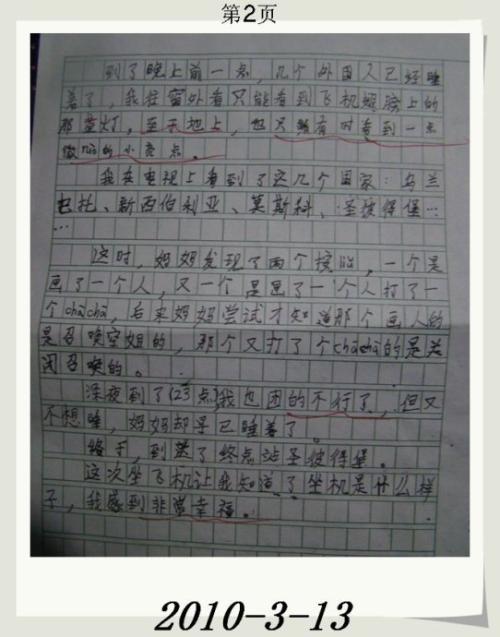 第2页
到了晚上前一点，几个外国人已经睡
着了，我往窗外看只能看到飞机翅膀上的
那蓝灯，至于地上，也只能有时看到一点
微的小亮点。
我在电视上看到了这几个国家：乌兰
巴托、新西伯利亚、莫斯科、圣彼得堡…
…
这时，妈妈发现了两个按钮，一个是
画了一个人，又一个是画了一个人打了一
个chācha，后来妈妈尝试才知道那个画人的
是召唤空姐的，那个又打了个chācha的是关
闭召唤的。
深夜到了(23点)我也困的不行了，但又
不想睡，妈妈却早已睡着了。
终于，到达了终点站圣彼得堡。
这次坐飞机让我知道了坐机是什么样
子，我感到非常幸福。
2010-3-13